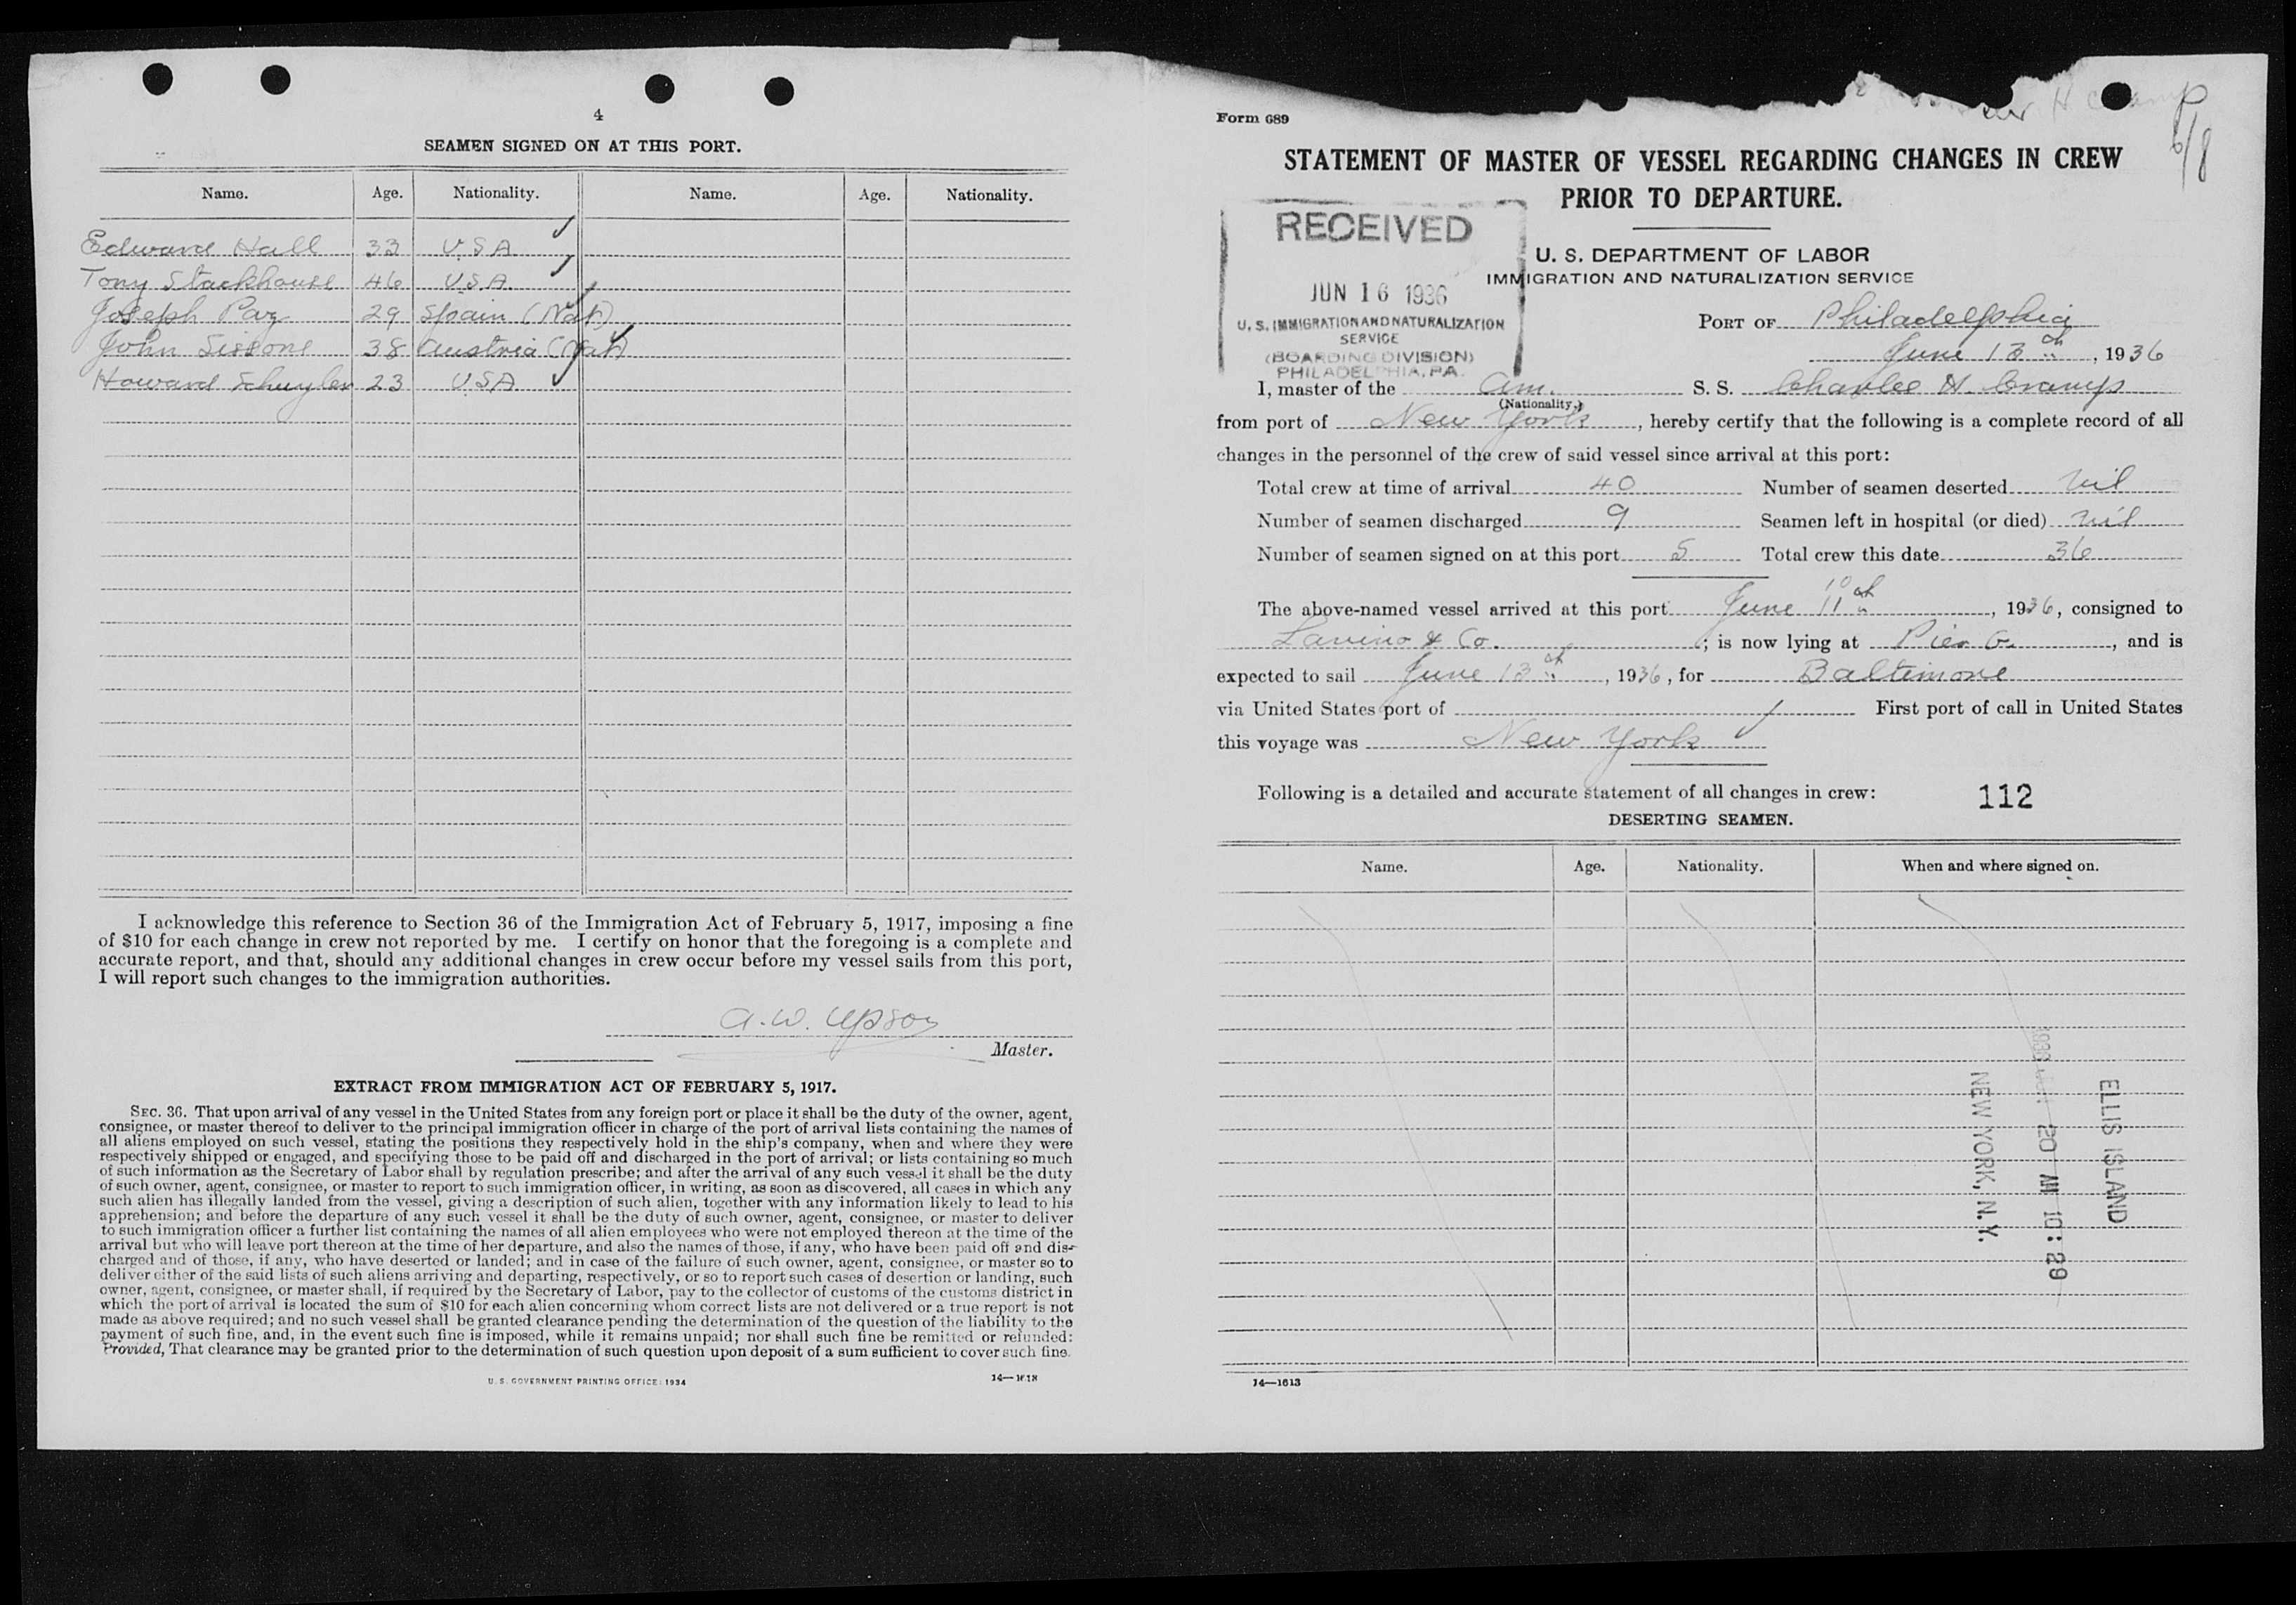 4
SEAMEN SIGNED ON AT THIS PORT.
Name. Age. Nationality. Name. Age. Nationality.
Edward Hall 33 U.S.A.
Tony Stackhouse 46 U.S.A.
Joseph Paz 29 Spain (Nat)
John Sissone 38 Austria (Nat)
Howard Schuyler 23 U.S.A
I acknowledge this reference to Section 36 of the Immigration Act of February 5, 1917, imposing a fine
of $10 for each change in crew not reported by me. I certify on honor that the foregoing is a complete and
accurate report, and that, should any additional changes in crew occur before my vessel sails from this port,
I will report such changes to the immigration authorities.
A. W. Upson
Master.
EXTRACT FROM IMMIGRATION ACT OF FEBRUARY 5, 1917.
SEC. 36. That upon arrival of any vessel in the United States from any foreign port or place it shall be the duty of the owner, agent,
consignee, or master thereof to deliver to the principal immigration officer in charge of the port of arrival lists containing the names of
all aliens employed on such vessel, stating the positions they respectively hold in the ship's company, when and where they were
respectively shipped or engaged, and specifying those to be paid off and discharged in the port of arrival; or lists containing so much
of such information as the Secretary of Labor shall by regulation prescribe; and after the arrival of any such vessel it shall be the duty
of such owner, agent, consignee, or master to report to such immigration officer, in writing, as soon as discovered, all cases in which any
such alien has illegally landed from the vessel, giving a description of such alien, together with any information likely to lead to his
apprehension; and before the departure of any such vessel it shall be the duty of such owner, agent, consignee, or master to deliver
to such immigration officer a further list containing the names of all alien employees who were not employed thereon at the time of the
arrival but who will leave port thereon at the time of her departure, and also the names of those, if any, who have been paid off and dis-
charged and of those, if any, who have deserted or landed; and in case of the failure of such owner, agent, consignee, or master so to
deliver either of the said lists of such aliens arriving and departing, respectively, or so to report such cases of desertion or landing, such
owner, agent, consignee, or master shall, if required by the Secretary of Labor, pay to the collector of customs of the customs district in
which the port of arrival is located the sum of $10 for each alien concerning whom correct lists are not delivered or a true report is not
made as above required; and no such vessel shall be granted clearance pending the determination of the question of the liability to the
payment of such fine, and, in the event such fine is imposed, while it remains unpaid; nor shall such fine be remitted or refunded:
Provided, That clearance may be granted prior to the determination of such question upon deposit of a sum sufficient to cover such fine.
U. S. GOVERNMENT PRINTING OFFICE: 1934
14—1613
H Cramp
6/8
Form 689
STATEMENT OF MASTER OF VESSEL REGARDING CHANGES IN CREW
PRIOR TO DEPARTURE.
RECEIVED
JUN 16 1936
U. S. IMMIGRATION AND NATURALIZATION
SERVICE
(BOARDING DIVISION)
PHILADELPHIA, PA.
U. S. DEPARTMENT OF LABOR
IMMIGRATION AND NATURALIZATION SERVICE
PORT OF Philadelphia
June 13th, 1936
I, master of the Am. S. S. Charles H. Cramp
(Nationality.)
from port of New York, hereby certify that the following is a complete record of all
changes in the personnel of the crew of said vessel since arrival at this port:
Total crew at time of arrival 40 Number of seamen deserted nil
Number of seamen discharged 9 Seamen left in hospital (or died) nil
Number of seamen signed on at this port 5 Total crew this date 36
The above-named vessel arrived at this port June 10 11th, 1936, consigned to
Lavino & Co.; is now lying at Pier G., and is
expected to sail June 13th, 1936, for Baltimore
via United States port of First port of call in United States
this voyage was New York
Following is a detailed and accurate statement of all changes in crew: 112
DESERTING SEAMEN.
Name. Age. Nationality. When and where signed on.
ELLIS ISLAND
20 AM 10:29
NEW YORK, N.Y.
14—1613